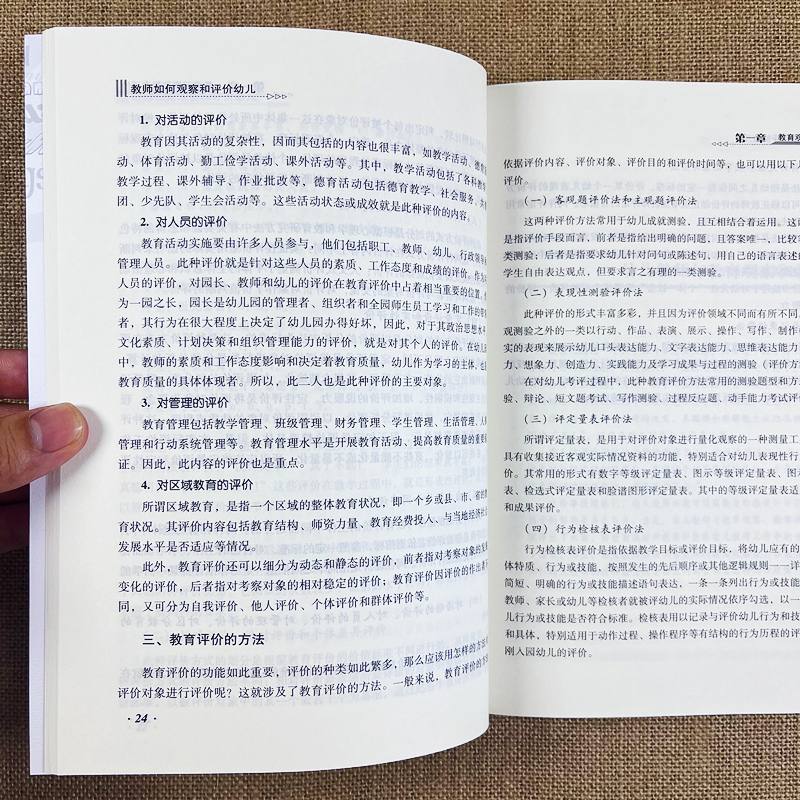 教师如何观察和评价幼儿
1. 对活动的评价
教育因其活动的复杂性，因而其包括的内容也很丰富，如教学活动、德育
动、体育活动、勤工俭学活动、课外活动等。其中，教学活动包括了各科教
教学过程、课外辅导、作业批改等，德育活动包括德育教学、社会服务、共
团、少先队、学生会活动等。这些活动状态或成效就是此种评价的内容。
2. 对人员的评价
教育活动实施要由许多人员参与，他们包括职工、教师、幼儿、行政领导
管理人员。此种评价就是针对这些人员的素质、工作态度和成绩的评价。作为
人员的评价，对园长、教师和幼儿的评价在教育评价中占着相当重要的位置，
为一园之长，园长是幼儿园的管理者、组织者和全园师生员工学习和工作的带
者，其行为在很大程度上决定了幼儿园办得好坏，因此，对于其政治思想水
文化素质、计划决策和组织管理能力的评价，就是对其个人的评价。在幼儿
中，教师的素质和工作态度影响和决定着教育质量，幼儿作为学习的主体，也
教育质量的具体体现者。所以，此二人也是此种评价的主要对象。
3. 对管理的评价
教育管理包括教学管理、班级管理、财务管理、学生管理、生活管理、人
管理和行动系统管理等。教育管理水平是开展教育活动、提高教育质量的重要
证。因此，此内容的评价也是重点。
4. 对区域教育的评价
所谓区域教育，是指一个区域的整体教育状况，即一个乡或县、市、省的
育状况。其评价内容包括教育结构、师资力量、教育经费投入、与当地经济社
发展水平是否适应等情况。
此外，教育评价还可以细分为动态和静态的评价，前者指对考察对象的发展
变化的评价，后者指对考察对象的相对稳定的评价；教育评价因评价的作出者
同，又可分为自我评价、他人评价、个体评价和群体评价等。
三、教育评价的方法
教育评价的功能如此重要，评价的种类如此繁多，那么应该用怎样的方法
评价对象进行评价呢？这就涉及了教育评价的方法。一般来说，教育评价的方
· 24 ·
第一章 教育观
依据评价内容、评价对象、评价目的和评价时间等，也可以用以下几
评价。
（一）客观题评价法和主观题评价法
这两种评价方法常用于幼儿成就测验，且互相结合着运用。这两
是指评价手段而言，前者是指给出明确的问题，且答案唯一、比较客
类测验；后者是指要求幼儿针对问句或陈述句，用自己的语言表述的
学生自由表达观点，但要求言之有理的一类测验。
（二）表现性测验评价法
此种评价的形式丰富多彩，并且因为评价领域不同而有所不同。
观测验之外的一类以行动、作品、表演、展示、操作、写作、制作等
实的表现来展示幼儿口头表达能力、文字表达能力、思维表达能力
力、想象力、创造力、实践能力及学习成果与过程的测验（评价方法
在对幼儿考评过程中，此种教育评价方法常用的测验题型和方
验、辩论、短文题考试、写作测验、过程反应题、动手能力考试评
（三）评定量表评价法
所谓评定量表，是用于对评价对象进行量化观察的一种测量工
具有收集接近客观实际情况资料的功能，特别适合对幼儿表现性行
价。其常用的形式有数字等级评定量表、图示等级评定量表、图示
表、检选式评定量表和脸谱图形评定量表。其中的等级评定量表适
和成果评价。
（四）行为检核表评价法
行为检核表评价是指依据教学目标或评价目标，将幼儿应有的
体特质、行为或技能、按照发生的先后顺序或其他逻辑规则一一详
简短、明确的行为或技能描述语句表达，一条一条列出行为或技能
教师、家长或幼儿等检核者就被评幼儿的实际情况依序勾选，以一
儿行为或技能是否符合标准。检核表用以记录与评价幼儿行为和技
和具体，特别适用于动作过程、操作程序等有结构的行为历程的评
刚入园幼儿的评价。